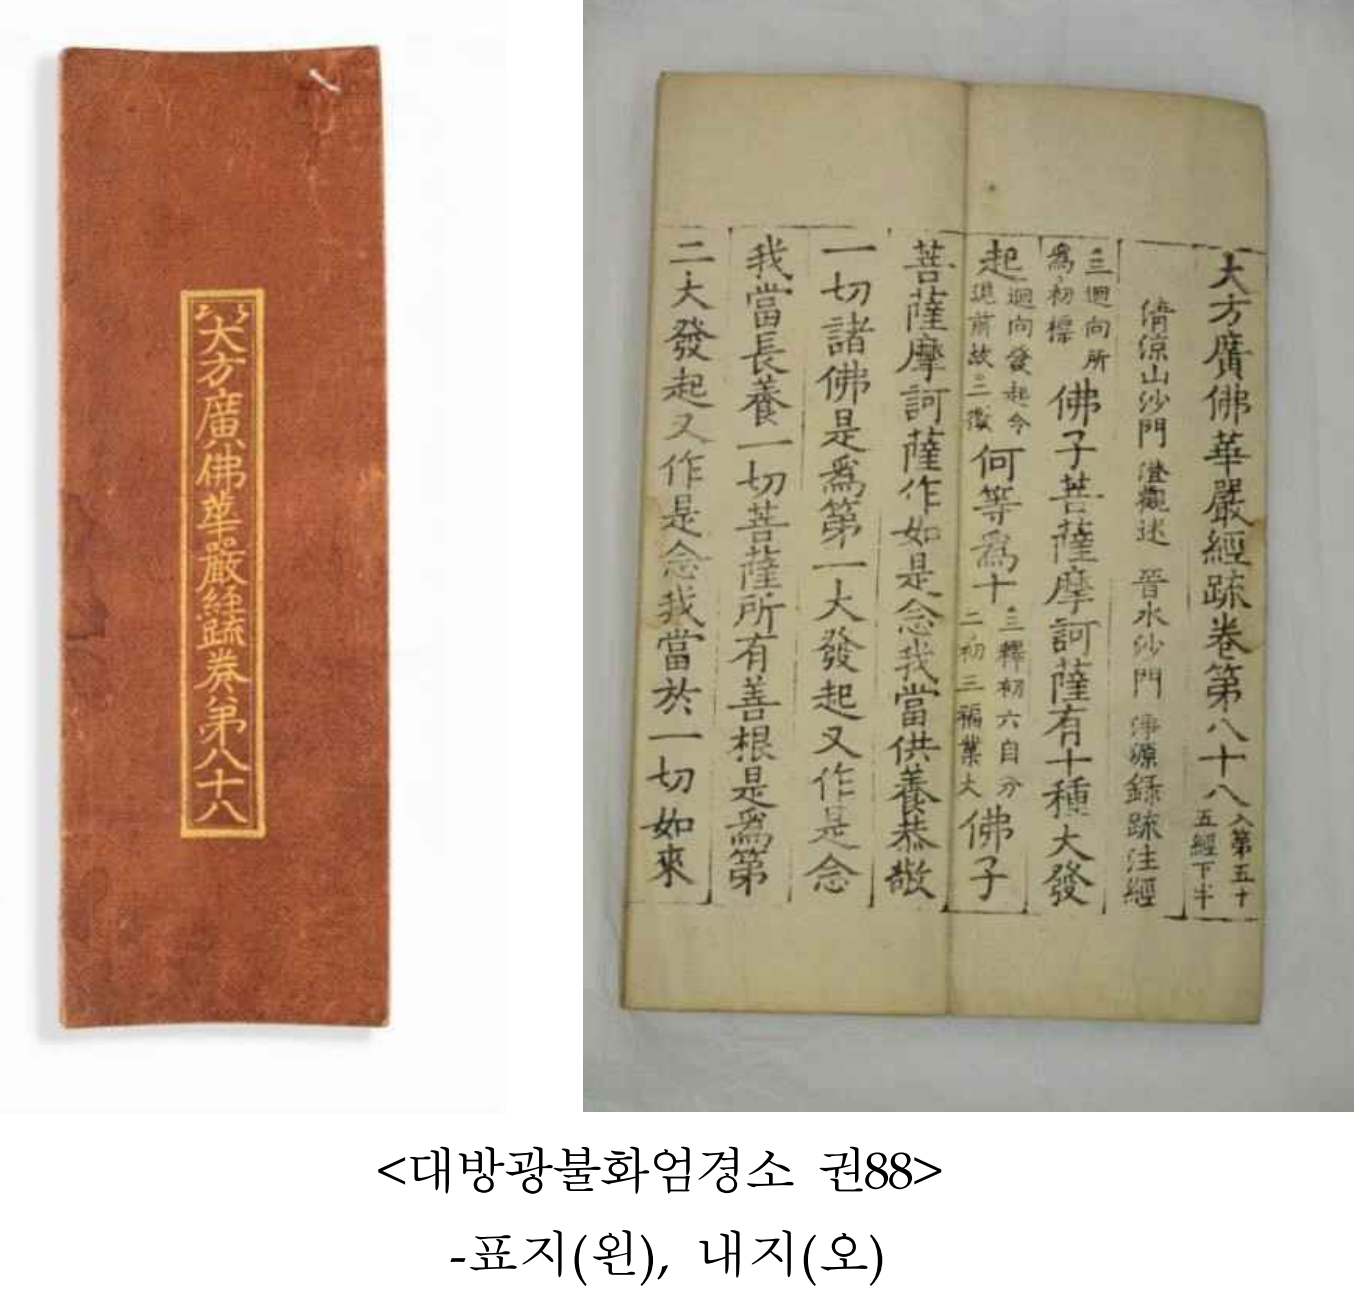 大方廣佛華嚴經疏卷第八十八
大方廣佛華嚴經疏卷第八十八 入第五十
五經下半
清涼山沙門 澄觀述 晉水沙門 淨源錄疏注經
三迴向所
爲初標
佛子菩薩摩訶薩有十種大發
起
迴向發起令
進前故三徵
何等爲十
三釋初六自分
二初三福業大
佛子
菩薩摩訶薩作如是念我當供養恭敬
一切諸佛是爲第一大發起又作是念
我當長養一切菩薩所有善根是爲第
二大發起又作是念我當於一切如來
<대방광불화엄경소 권88>
-표지(왼), 내지(오)